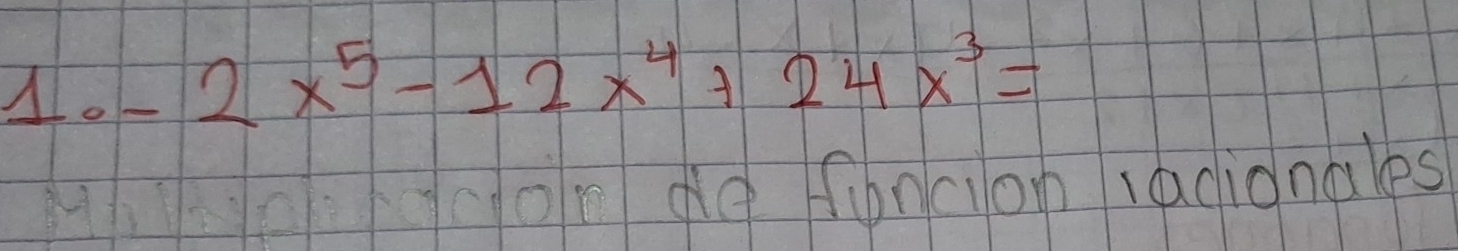 1.- 2x⁵-12x⁴+24x³=
Multiplicación de función racionales